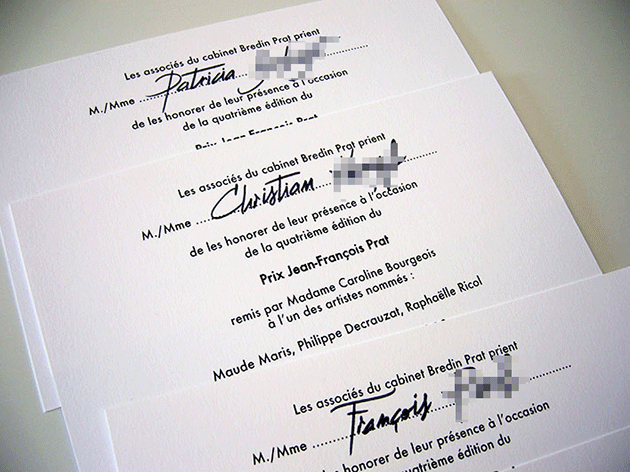 Les associés du cabinet Bredin Prat prient
M./Mme ....Patricia
de les honorer de leur présence à l'occasion
de la quatrième édition du
Prix Jean-François Prat
Les associés du cabinet Bredin Prat prient
M./Mme ....Christian....
de les honorer de leur présence à l'occasion
de la quatrième édition du
Prix Jean-François Prat
remis par Madame Caroline Bourgeois
à l'un des artistes nommés :
Maude Maris, Philippe Decrauzat, Raphaëlle Ricol
Les associés du cabinet Bredin Prat prient
M./Mme ....François
de les honorer de leur présence à l'occasion
de la quatrième édition du